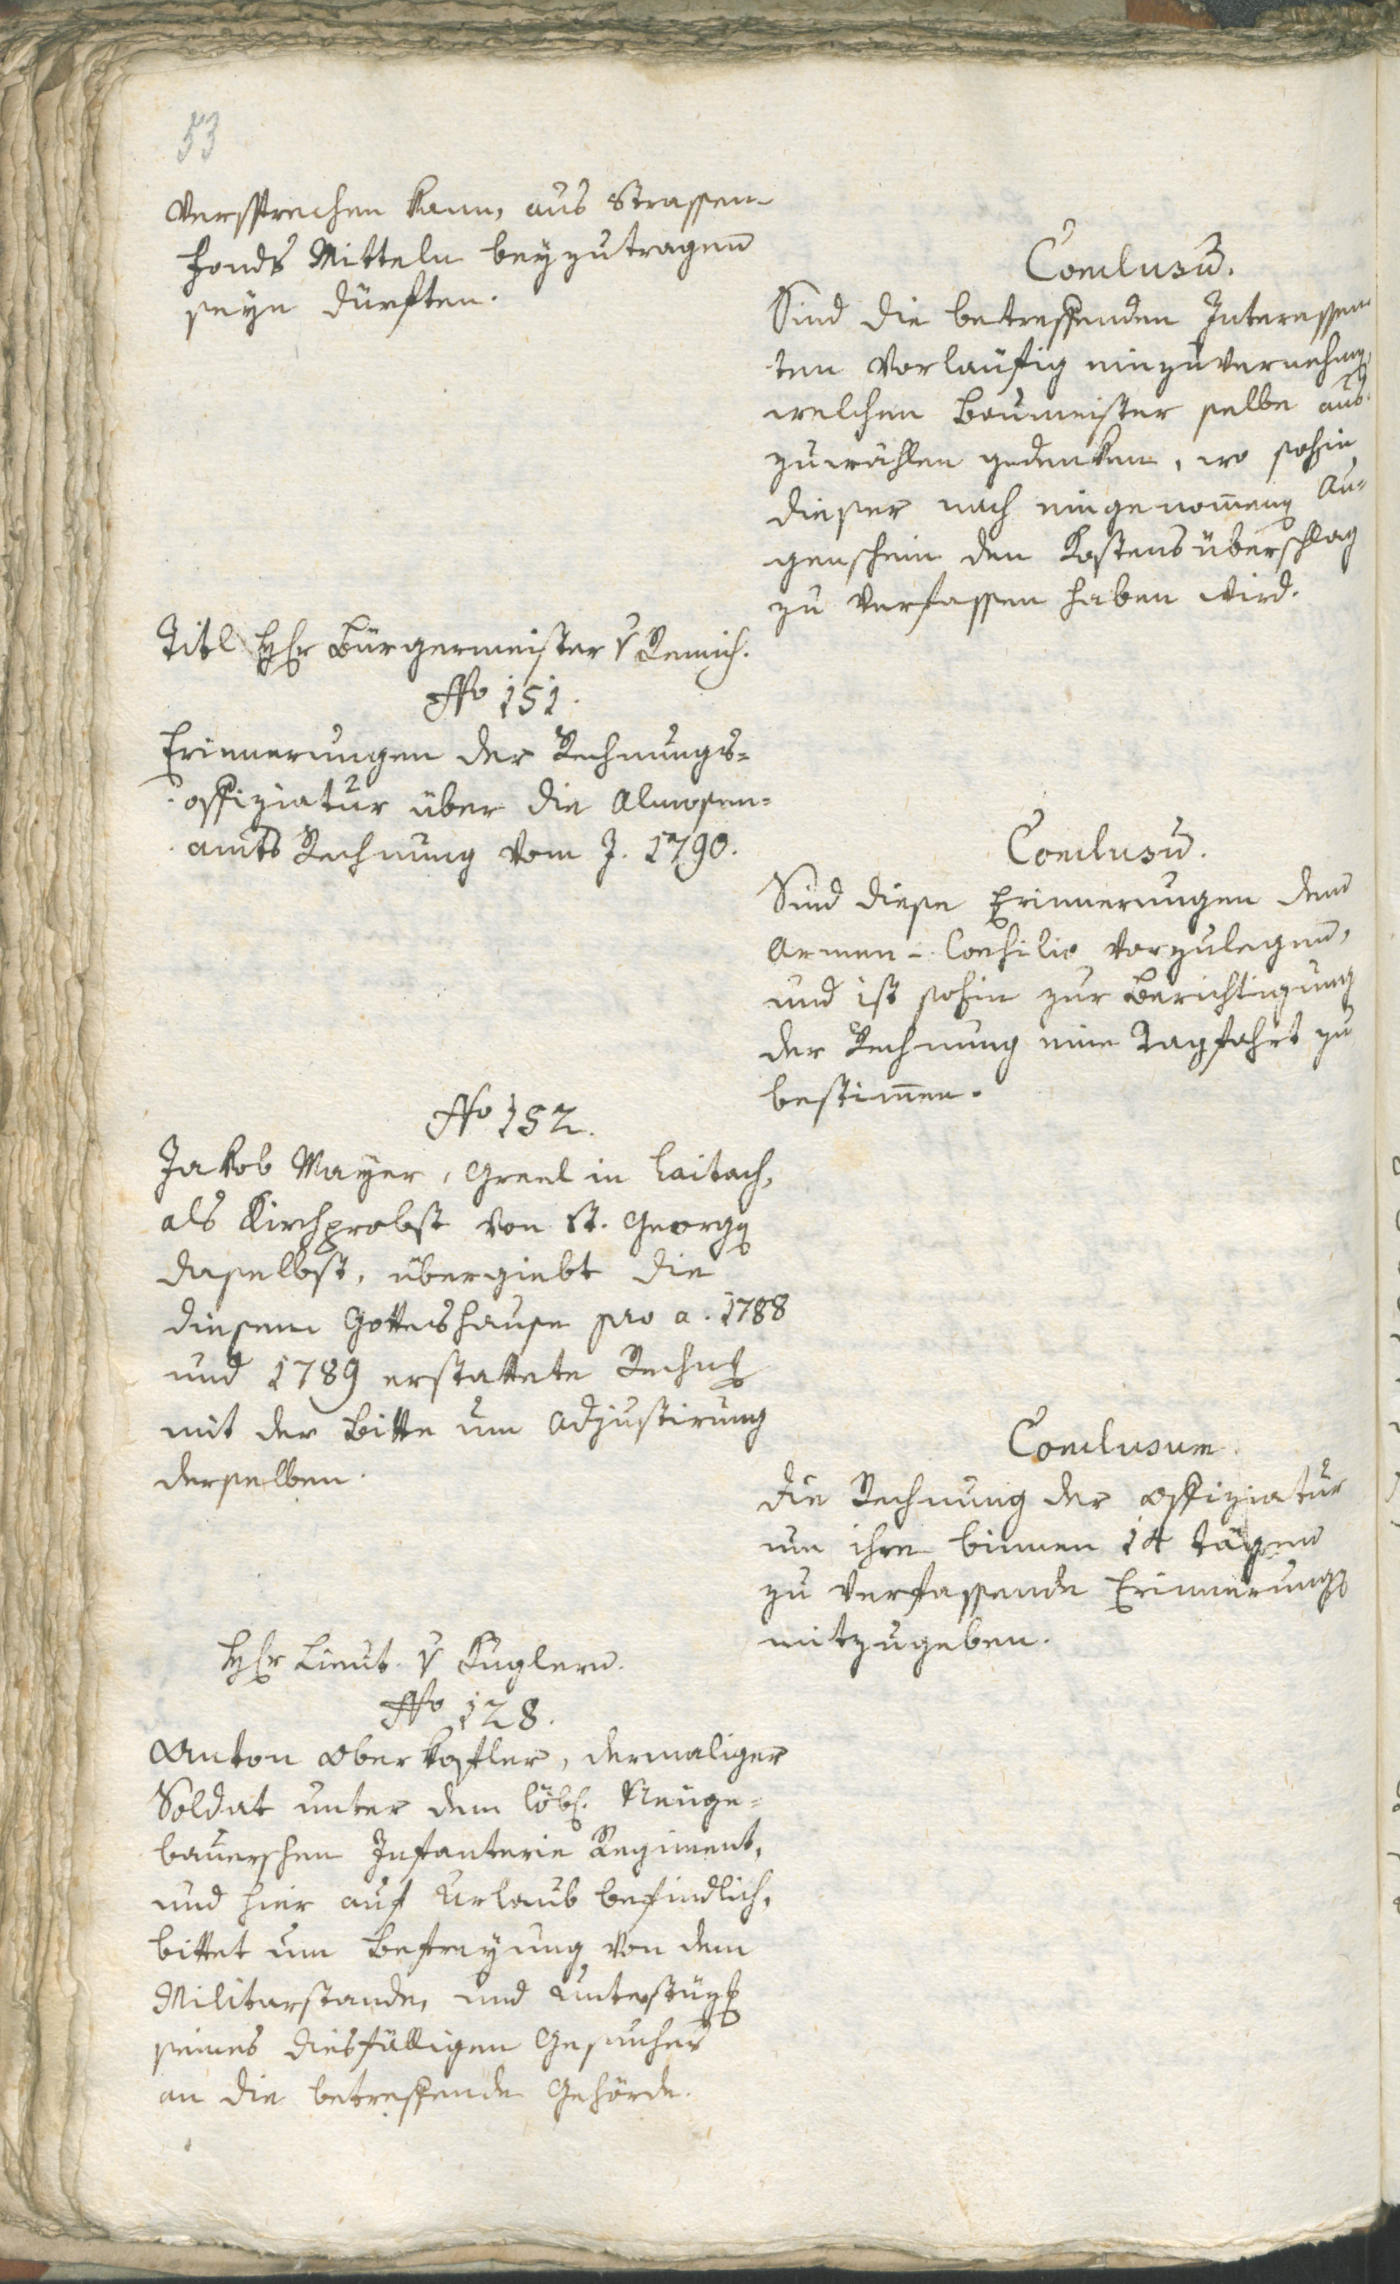 53
versprechen kann, aus Strassen-
fonds Mitteln beyzutragen
seyn dürften.
Conclusū.
Sind die betreffenden Interessen
ten vorläufig einzuvernehmen,
welchen Baumeister selbe aus-
zuwählen gedenken, wo sohin
dieser nach eingenommenen Au-
genschein den Kostensüberschlag
zu verfassen haben wird.
Titl. Hr Bürgermeister v Remich.
No 151.
Erinnerungen der Rechnungs-
offiziatur über die Almosen-
amts Rechnung vom J. 1790.
Conclusū.
Sind diese Erinnerungen dem
Armen-Consilio vorzulegen,
und ist sohin zur Berichtigung
der Rechnung eine Tagfahrt zu
bestim̄en.
No 152.
Jakob Mayer, Greel in Laitach,
als Kirchprobst von St. Georgen
daselbst, übergiebt die
diesem Gotteshause pro a. 1788
und 1789 erstattete Rechnung
mit der Bitte um Adjustirung
derselben.
Conclusum.
Die Rechnung der Offiziatur
um ihre binnen 14 tägen
zu verfassende Erinnerungen
mitzugeben.
Hr Lieut. v Kuglern.
No 128.
Anton Oberkofler, dermaliger
Soldat unter dem löbl. Neuge-
bauerschen Infanterie Regiment,
und hier auf Urlaub befindlich,
bittet um Befreyung von dem
Militarstande, und Unterstützung
seines diesfälligen Gesuches
an die betreffende Gehörde.